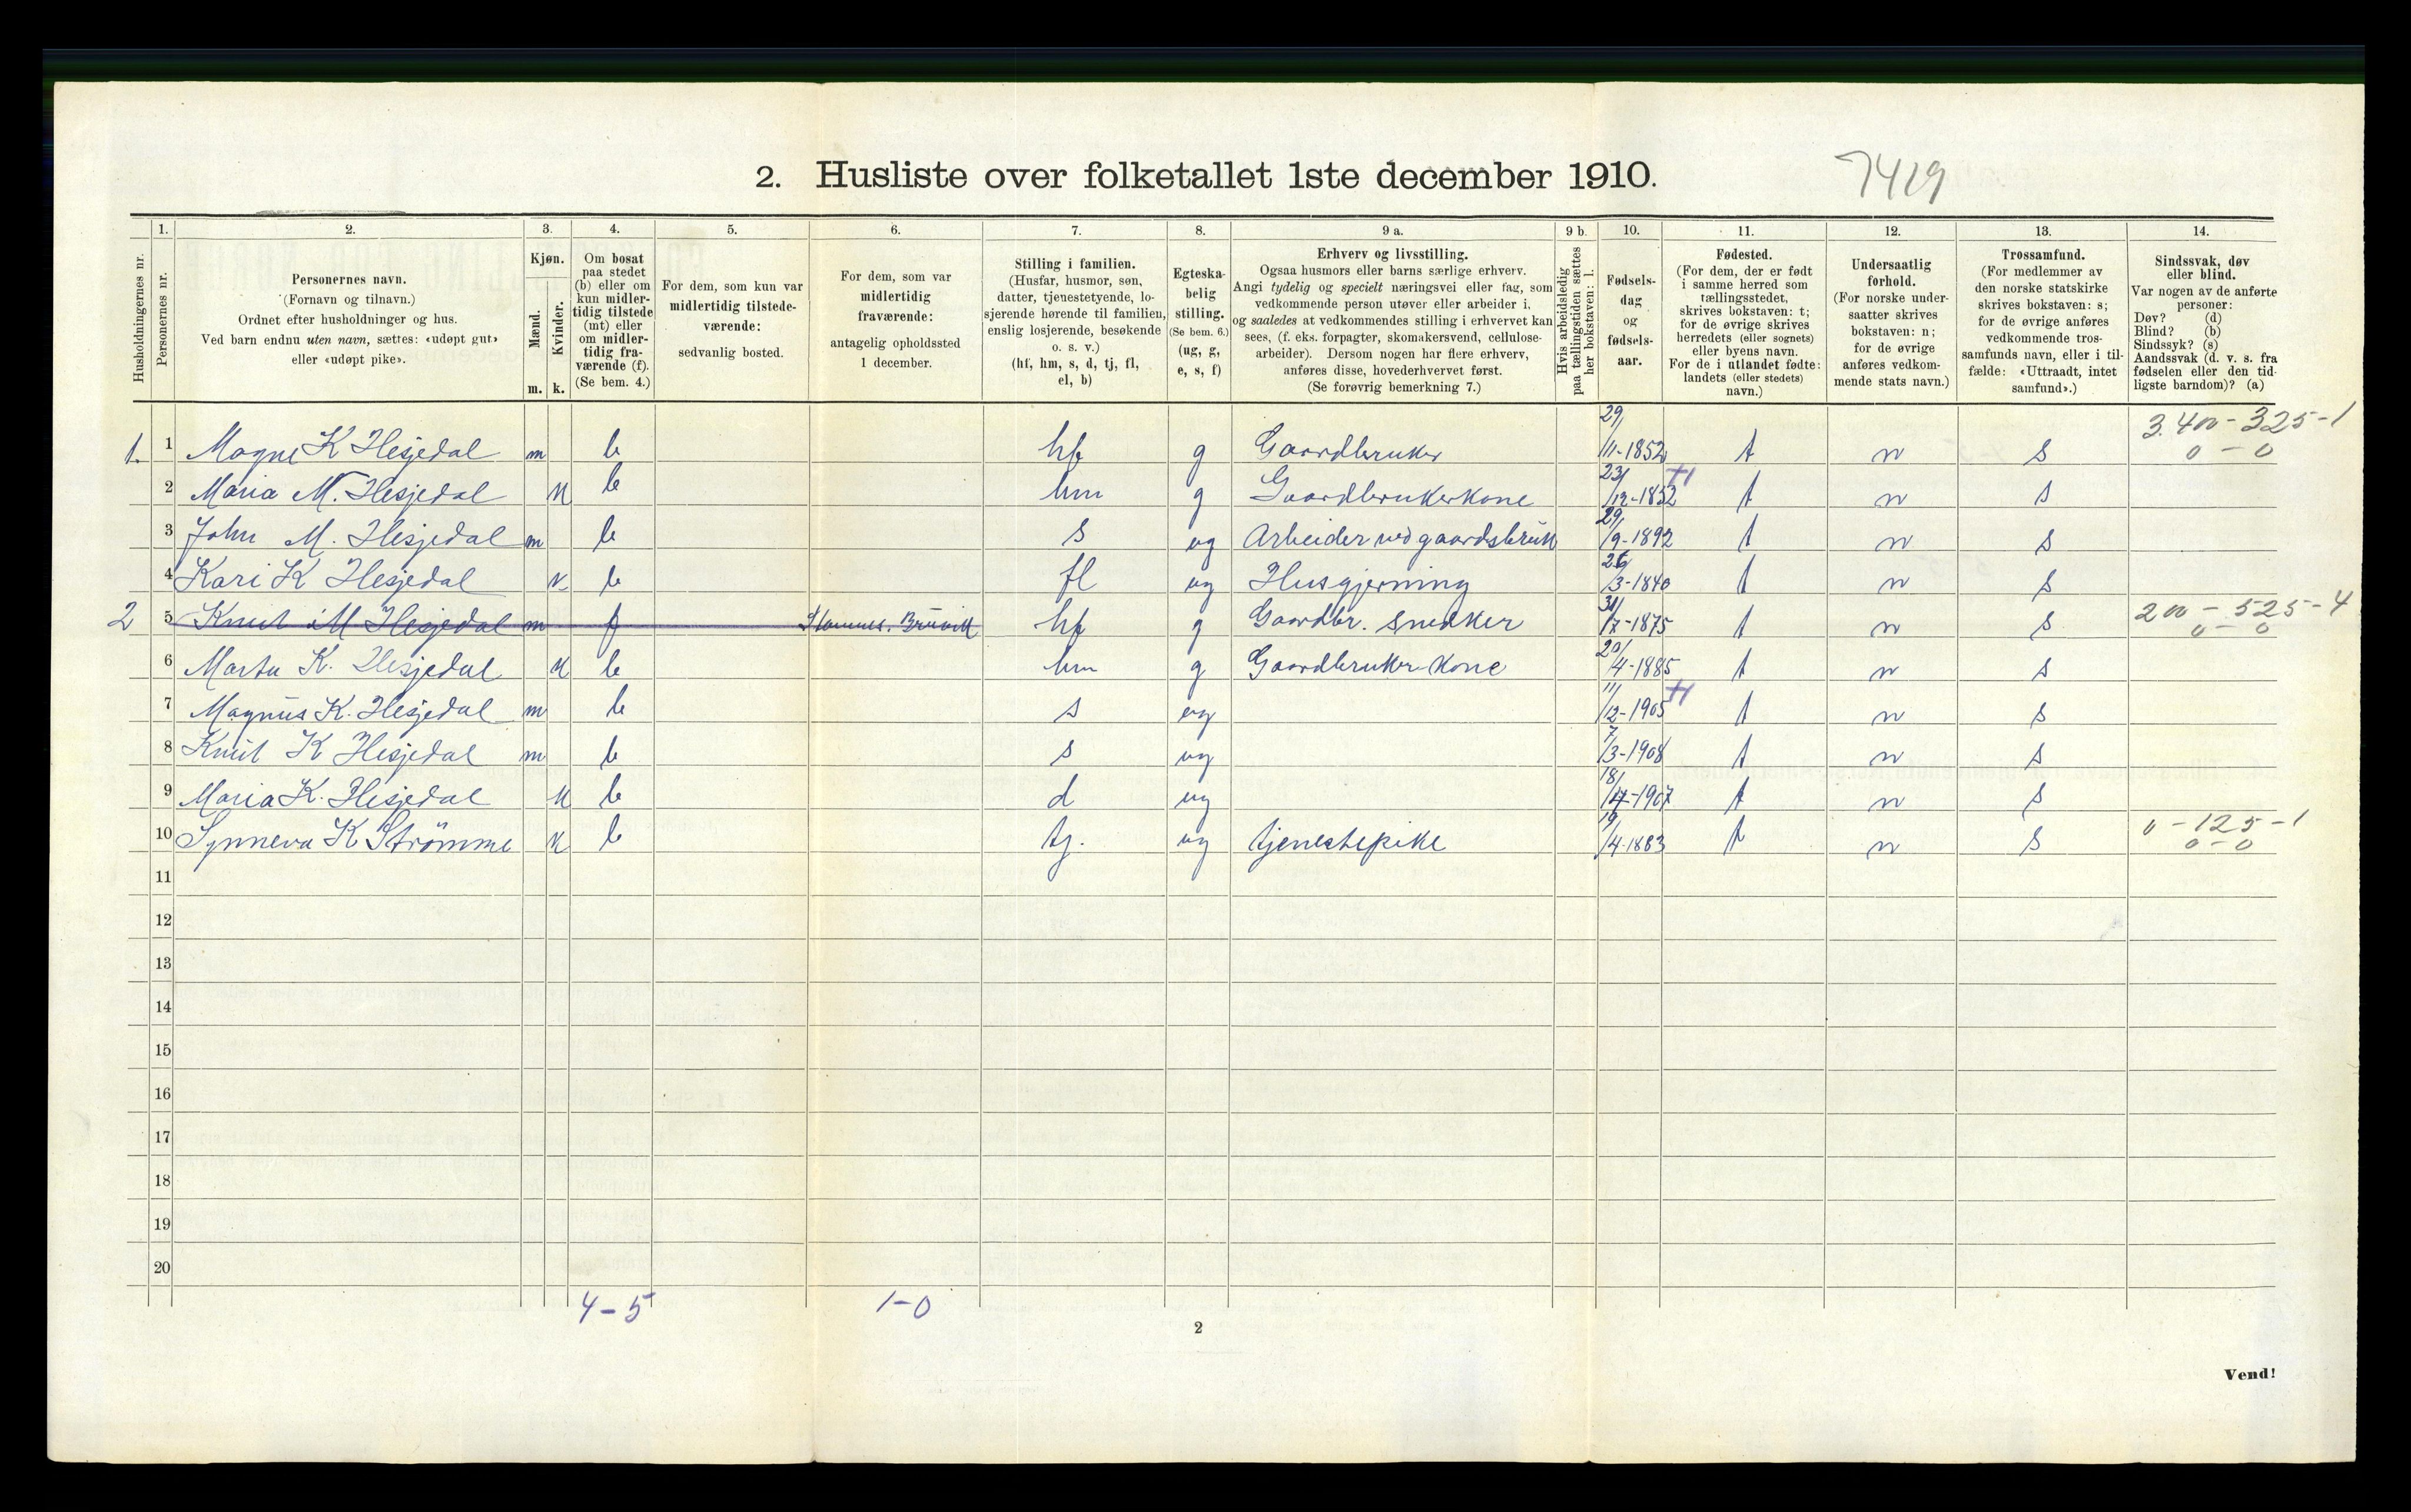 2. Husliste over folketallet 1ste december 1910.
7419
1. 2. 3. 4. 5. 6. 7. 8. 9 a. 9 b. 10. 11. 12. 13. 14.
Husholdningernes nr.
Personernes nr.
Personernes navn.
(Fornavn og tilnavn.)
Ordnet efter husholdninger og hus.
Ved barn endnu uten navn, sættes: «udøpt gut»
eller «udøpt pike».
Kjøn.
Mænd.
Kvinder.
m. k.
Om bosat
paa stedet
(b) eller om
kun midler-
tidig tilstede
(mt) eller
om midler-
tidig fra-
værende (f).
(Se bem. 4.)
For dem, som kun var
midlertidig tilstede-
værende:
sedvanlig bosted.
For dem, som var
midlertidig
fraværende:
antagelig opholdssted
1 december.
Stilling i familien.
(Husfar, husmor, søn,
datter, tjenestetyende, lo-
sjerende hørende til familien,
enslig losjerende, besøkende
o. s. v.)
(hf, hm, s, d, tj, fl,
el, b)
Egteska-
belig
stilling.
(Se bem. 6.)
(ug, g,
e, s, f)
Erhverv og livsstilling.
Ogsaa husmors eller barns særlige erhverv.
Angi tydelig og specielt næringsvei eller fag, som
vedkommende person utøver eller arbeider i,
og saaledes at vedkommendes stilling i erhvervet kan
sees, (f. eks. forpagter, skomakersvend, cellulose-
arbeider). Dersom nogen har flere erhverv,
anføres disse, hovederhvervet først.
(Se forøvrig bemerkning 7.)
Hvis arbeidsledig
paa tællingstiden sættes
her bokstaven: l.
Fødsels-
dag
og
fødsels-
aar.
Fødested.
(For dem, der er født
i samme herred som
tællingsstedet,
skrives bokstaven: t;
for de øvrige skrives
herredets (eller sognets)
eller byens navn.
For de i utlandet fødte:
landets (eller stedets)
navn.)
Undersaatlig
forhold.
(For norske under-
saatter skrives
bokstaven: n;
for de øvrige
anføres vedkom-
mende stats navn.)
Trossamfund.
(For medlemmer av
den norske statskirke
skrives bokstaven: s;
for de øvrige anføres
vedkommende tros-
samfunds navn, eller i til-
fælde: «Uttraadt, intet
samfund».)
Sindssvak, døv
eller blind.
Var nogen av de anførte
personer:
Døv? (d)
Blind? (b)
Sindssyk? (s)
Aandssvak (d. v. s. fra
fødselen eller den tid-
ligste barndom)? (a)
1. 1 Magne K Hesjedal m b hf g Gaardbruker 29/11-1852 t n s 3.400-325-1 0-0
2 Maria M. Hesjedal k b hm g Gaardbrukerkone 23/12-1852 t n s
3 John M. Hesjedal m b s ug Arbeider ved gaardsbruk 29/9-1892 t n s
4 Kari K Hesjedal k b fl ug Husgjerning 26/3-1840 t n s
2 5 Knut M Hesjedal m f Stamnes. Bruvik hf g Gaardbr. Snedker 31/7-1875 t n s 200-525-4 0-0
6 Marta K. Hesjedal k b hm g Gaardbruker kone 20/4-1885 t n s
7 Magnus K. Hesjedal m b s ug 11/12-1905 t n s
8 Knut K Hesjedal m b s ug 7/3-1908 t n s
9 Maria K. Hesjedal k b d ug 18/-1907 t n s
10 Synneva K Strømme k b tj. ug tjenestepike 19/4-1883 t n s 0-125-1 0-0
11
12
13
14
15
16
17
18
19
20
4-5 1-0
2
Vend!